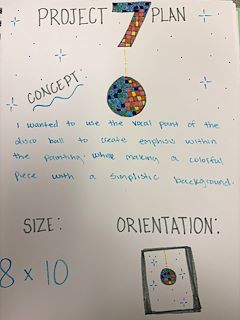 PROJECT 7 PLAN
CONCEPT:
I wanted to use the vocal point of the
disco ball to create emphisis within
the painting. While making a colorful
piece with a simplistic background.
SIZE: ORIENTATION:
8 x 10